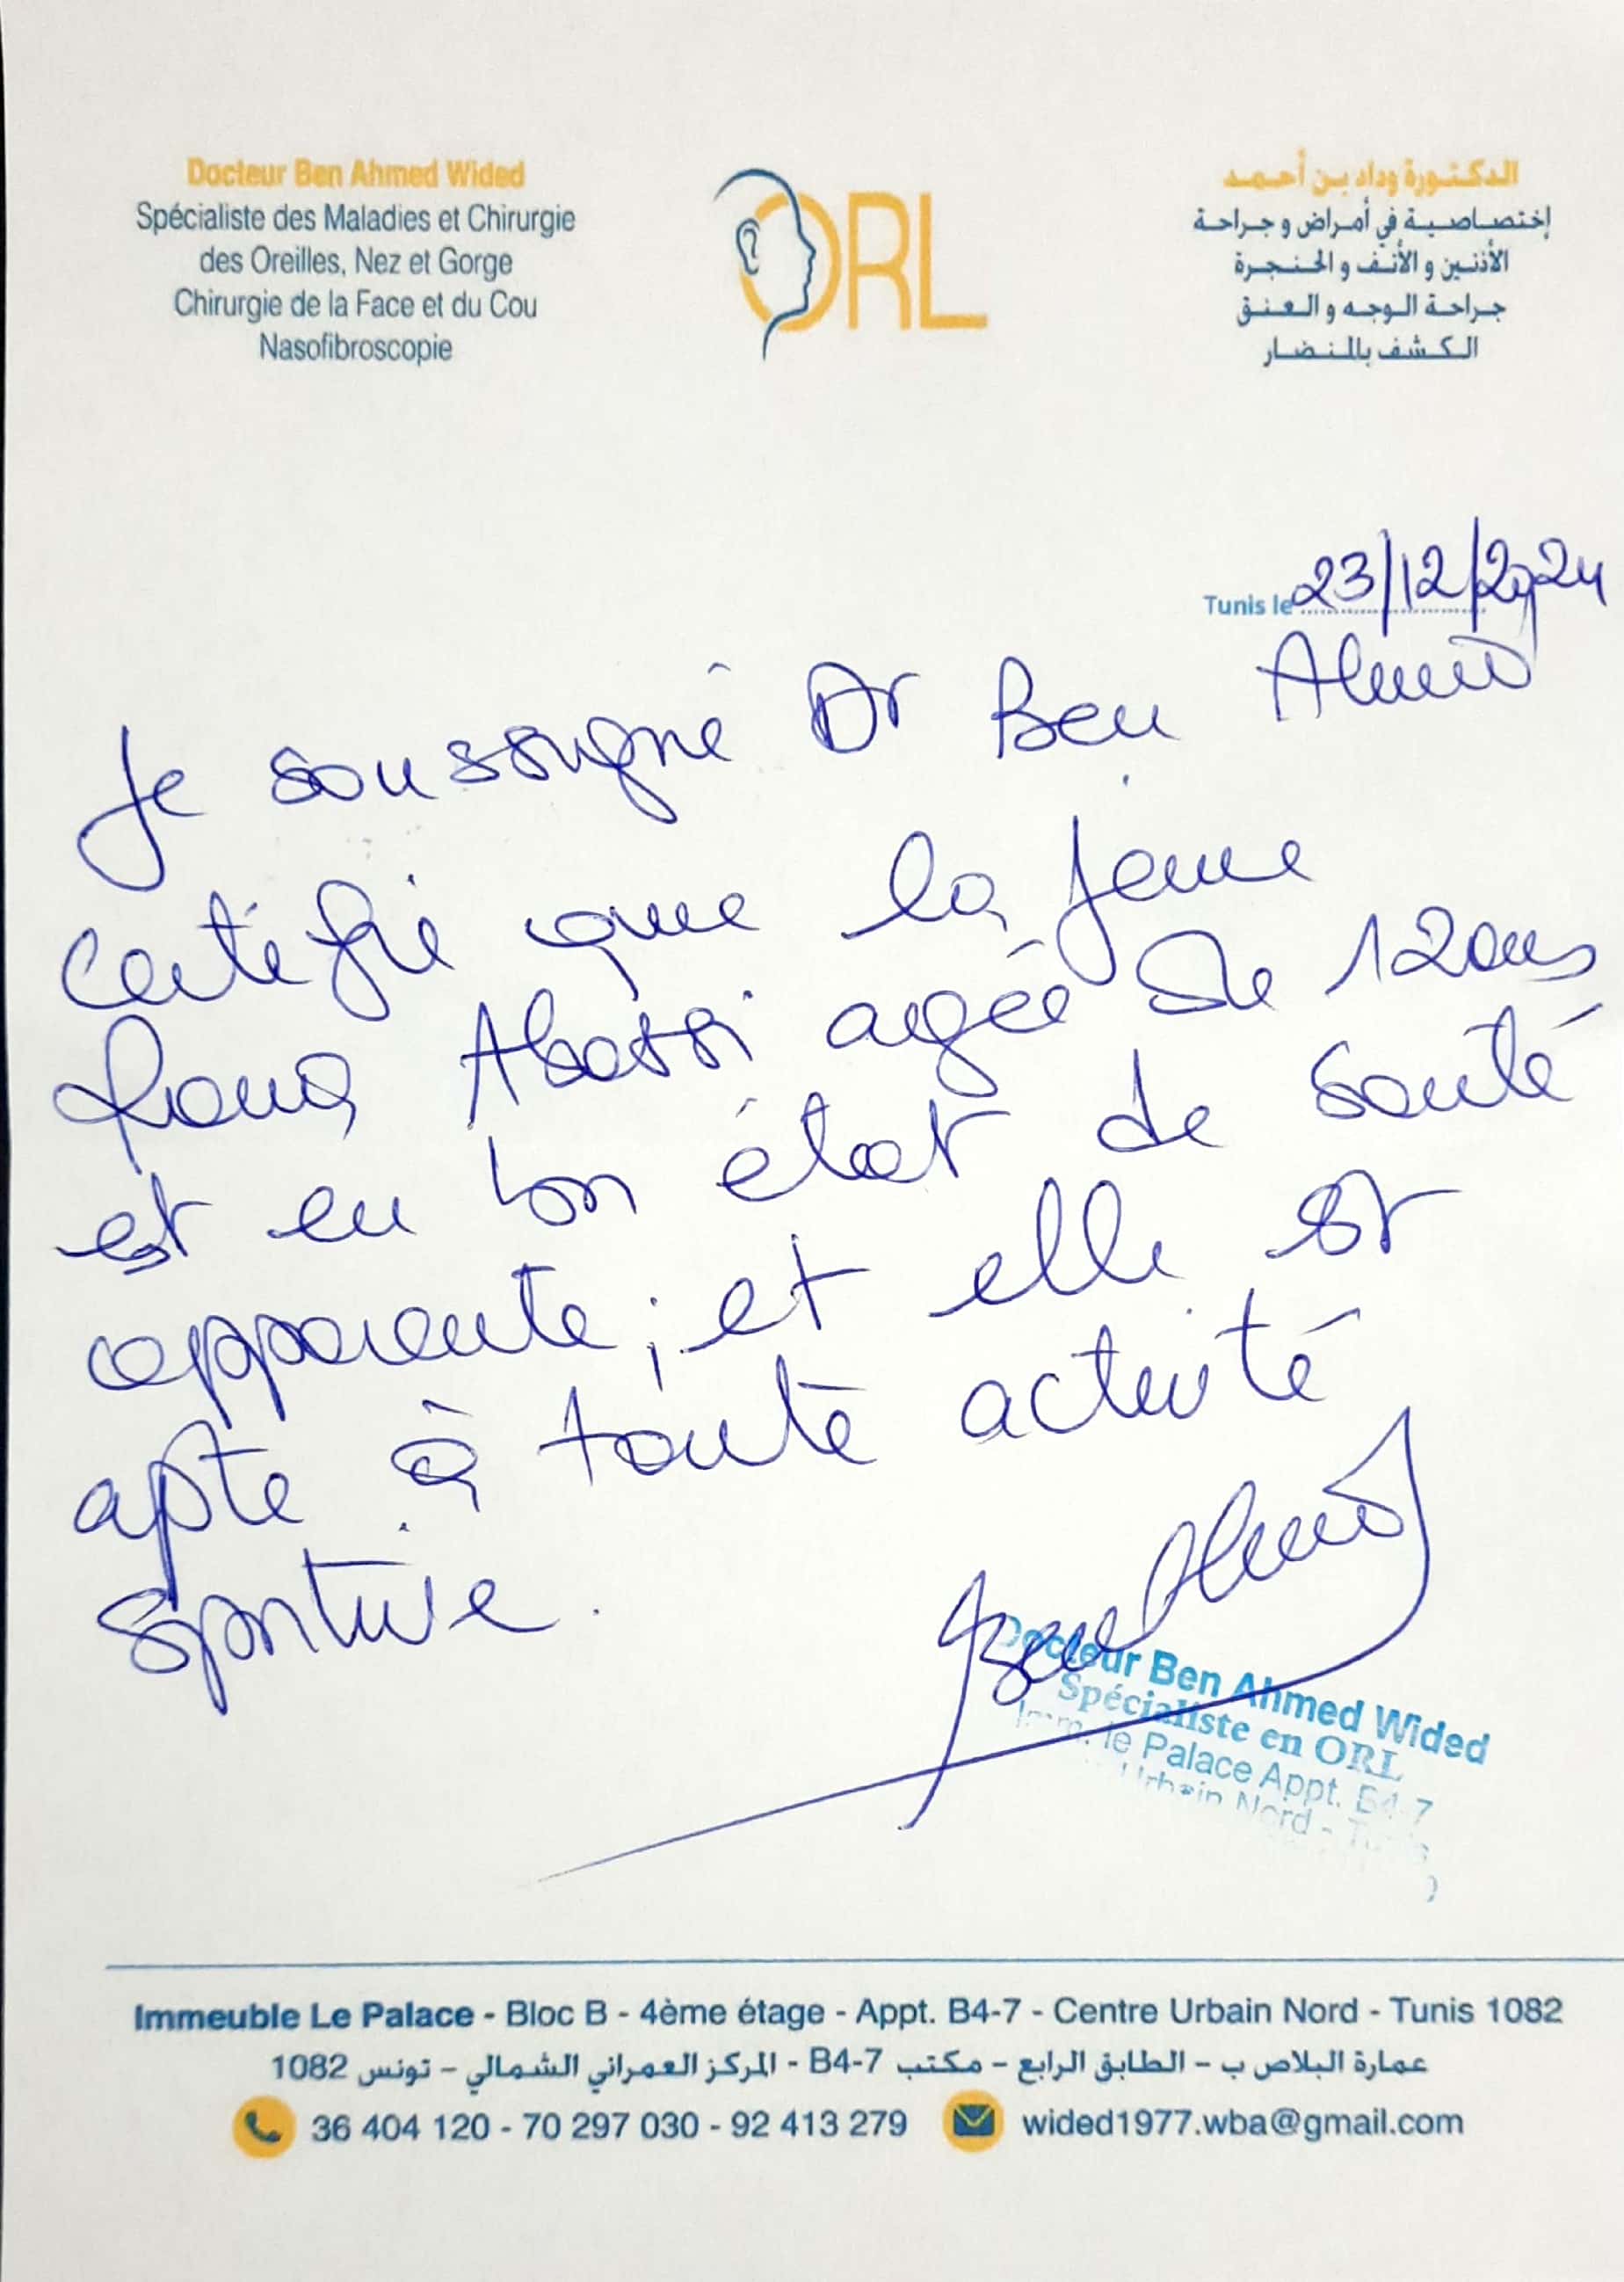 Docteur Ben Ahmed Wided
Spécialiste des Maladies et Chirurgie
des Oreilles, Nez et Gorge
Chirurgie de la Face et du Cou
Nasofibroscopie
ORL
الدكتورة وداد بن أحمد
إختصاصية في أمراض و جراحة
الأذنين و الأنف و الحنجرة
جراحة الوجه و العنق
الكشف بالمنضار
Tunis le 23/12/2024
Je soussigné Dr Ben Ahmed
certifie que la jeune
Abassi agée de 12 ans
est en bon état de santé
apparente, et elle est
apte à toute activité
sportive.
Ben Ahmed
Docteur Ben Ahmed Wided
Spécialiste en ORL
Imm. le Palace Appt. B4-7
Urbain Nord - Tunis
Immeuble Le Palace - Bloc B - 4ème étage - Appt. B4-7 - Centre Urbain Nord - Tunis 1082
عمارة البلاص ب – الطابق الرابع – مكتب B4-7 - المركز العمراني الشمالي – تونس 1082
36 404 120 - 70 297 030 - 92 413 279 wided1977.wba@gmail.com